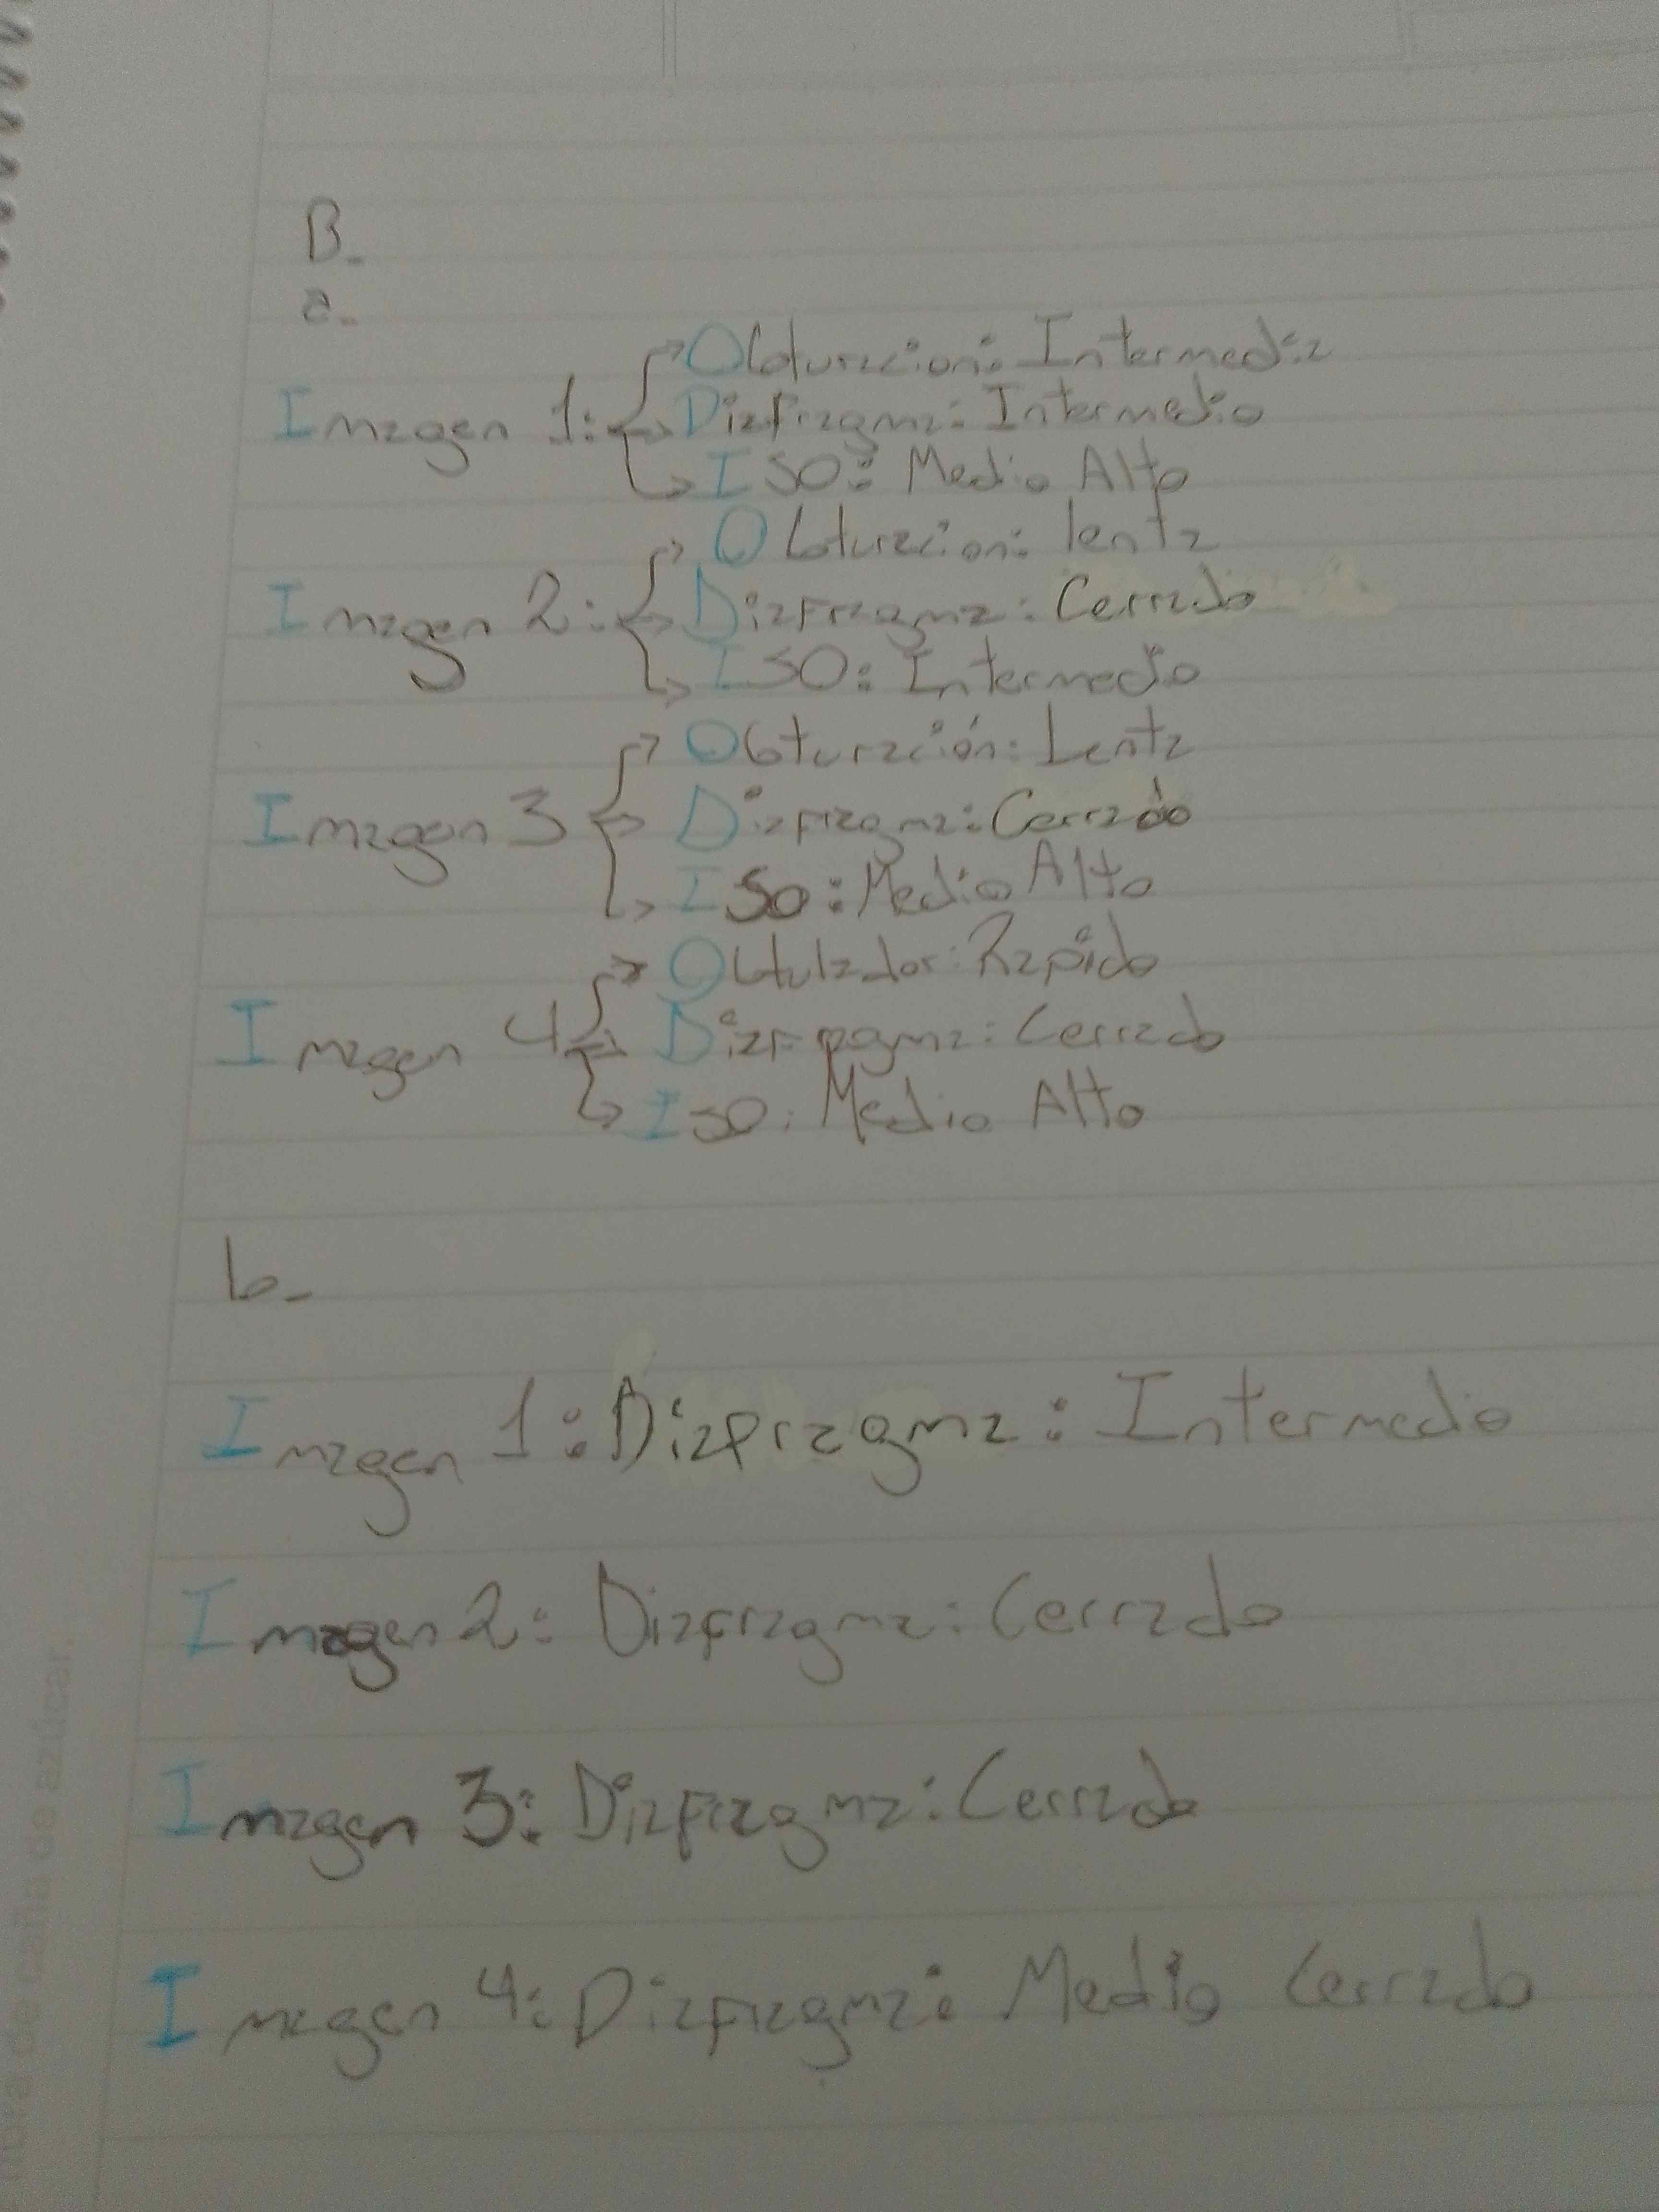 B.
a.
Imagen 1: Obturacion: Intermedia
Diafragma: Intermedio
ISO: Medio Alto
Imagen 2: Obturacion: lenta
Diafragma: Cerrado
ISO: Intermedio
Imagen 3 Obturación: Lenta
Diafragma: Cerrado
ISO: Medio Alto
Imagen 4 Obtulador: Rapido
Diafragma: Cerrado
ISO: Medio Alto
b-
Imagen 1: Diafragma: Intermedio
Imagen 2: Diafragma: Cerrado
Imagen 3: Diafragma: Cerrado
Imagen 4: Diafragma: Medio Cerrado
de caña de azúcar.